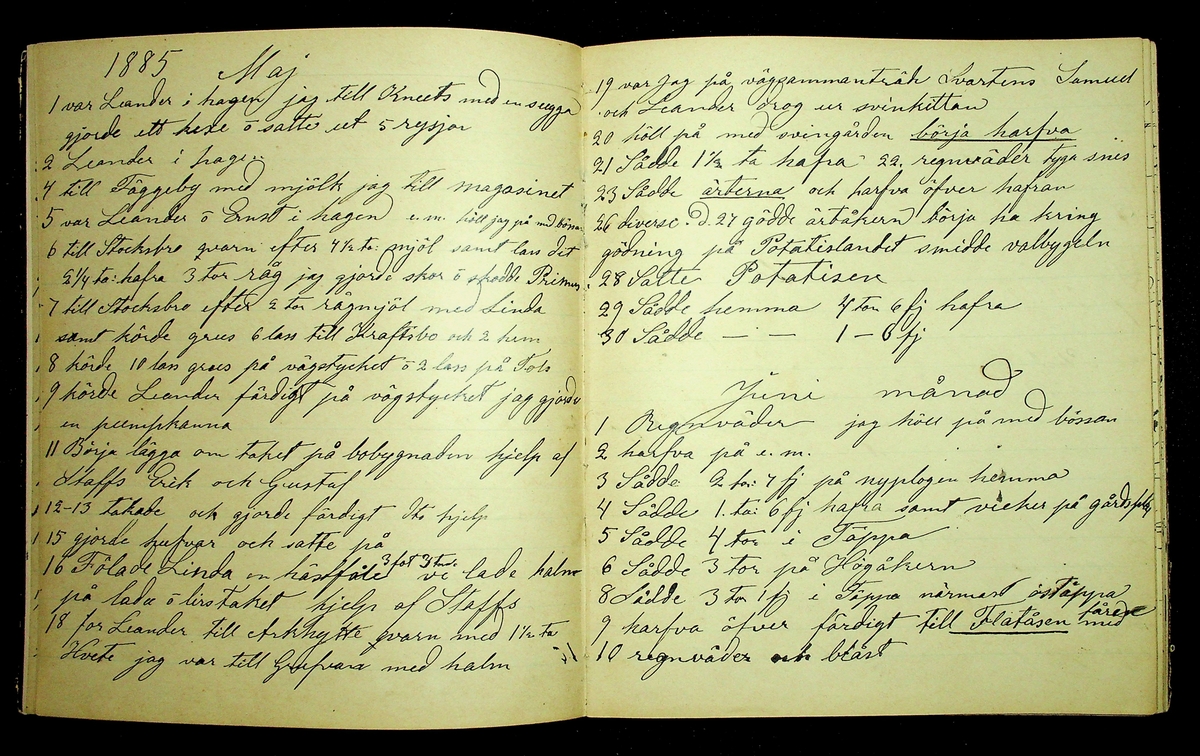 1885 Maj
1 var Leander i hagen jag till Kneets med en sugga
gjorde ett hexe o satte ut 5 rysjor
2 Leander i hagen
4 till Fäggeby med mjölk jag till magasinet
5 var Leander o Ernst i hagen e.m. höll jag på med bössan
6 till Stocksbro qvarn efter 4 1/2 ta: mjöl samt lass det
2 1/4 ta: hafra 3 tor råg jag gjorde skor o skodde Primus
7 till Stocksbro efter 2 tor rågmjöl med Linda
samt körde grus 6 lass till Kraftsbo och 2 hem
8 körde 10 lass grus på vägstycket o 2 lass på Tols
9 körde Leander färdigt på vägstycket jag gjorde
en pumpkanna
11 Börja lägga om taket på bobygnaden hjelp af
Staffs Erik och Gustaf
12-13 takade och gjorde färdigt dto hjelp
15 gjorde hufvar och satte på
16 Fölade Linda en hästföle 3 fot 3 tum. vi lade halm
på ladu o lirstaket hjelp af Staffs
18 for Leander till Arkhytte qvarn med 1 1/2 ta
Hvete jag var till Grufvan med halm
19 var jag på vägsammanträde Svartens Samuel
och Leander drog ur svinkittan
20 höll på med svingården börja harfva
21 Sådde 1 1/2 ta hafra 22. regnväder tyga snis
23 Sådde ärterna och harfva öfver hafran
26 diverse. d. 27 gödde ärtåkern börja ha kring
gödning på Potatislandet smidde valbygeln
28 Satte Potatisen
29 Sådde hemma 4 tor 6 fj hafra
30 Sådde — — 1 – 6 fj
Juni månad
1 Regnväder jag höll på med bössan
2 harfva på e.m.
3 Sådde 2 ta: 7 fj på nyplogen hemma
4 Sådde 1. ta: 6 fj hafra samt vicker på
5 Sådde 4 tor i Täppa
6 Sådde 3 tor på Högåkern
8 Sådde 3 tor 1 fj i Täppa närmast östäppa
9 harfva öfver färdigt till Flatåsen med
10 regnväder och blåst